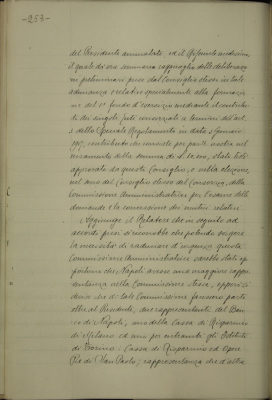 -253-
del Presidente ammalato ed il Referente medesimo,
il quale dà ora sommario ragguaglio delle deliberazio
ni preliminari prese dal Consiglio stesso in tale
adunanza e relative specialmente alla formazio
ne del 1° fondo d'esercizio mediante il contributo
dei singoli Enti consorziati a termini dell'art.
dello Speciale Regolamento in data Gennaio
contributo che consiste per parte nostra nel
versamento della somma di L. stato
approvato da questo Consiglio, e nella elezione
nel seno del Consiglio stesso del Consorzio, della
Commissione Amministratrice per l'esame delle
domande e la concessione dei mutui relativi.
Aggiunge il Relatore che in seguito ad
accordi presi si riconobbe che potendo sorgere
la necessità di radunare d'urgenza questa
Commissione Amministratrice, sarebbe stato op
portuno che Napoli avesse una maggiore rappre
sentanza nella Commissione stessa, epperciò si
decise che di tale Commissione facessero parte
oltre al Presidente, due rappresentanti del Ban
co di Napoli, uno della Cassa di Risparmio
di Milano ed uno per entrambi gli Istituti
di Torino: Cassa di Risparmio ed Opere
Pie di San Paolo; rappresentanza che d'altra